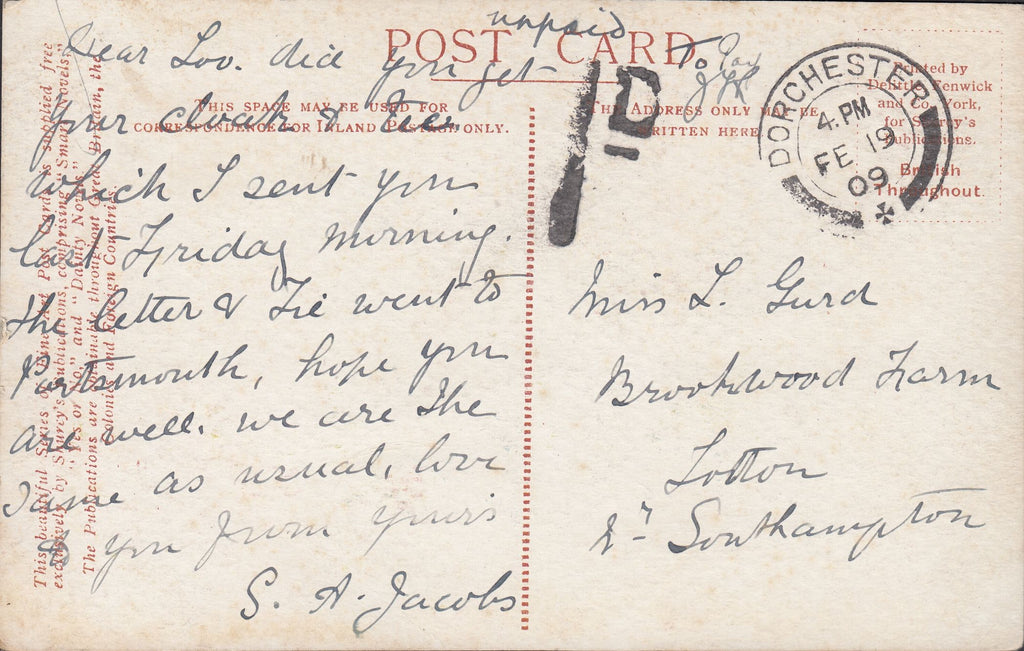 unpaid
POST CARD
To Pay
THIS SPACE MAY BE USED FOR
CORRESPONDENCE FOR INLAND POSTAGE ONLY.
THE ADDRESS ONLY MAY BE
WRITTEN HERE
1D
DORCHESTER
4. PM
FE 19
09
Printed by
Delittle, Fenwick
and Co., York,
for Shurey's
Publications.
British
Throughout.
Dear Loo. did you get
your cloak & tie
which I sent you
last Friday morning.
the letter & Tie went to
Portsmouth, hope you
are well. we are the
same as usual, love
to you from yours
S. A. Jacobs
Miss L. Gurd
Brookwood Farm
Totton
Nr Southampton
This beautiful Series of Fine Art Post Cards is supplied free
exclusively by Shurey's Publications, comprising "Smart Novels,"
"Yes or No," and "Dainty Novels."
The Publications are obtainable throughout Great Britain, the
Colonies and Foreign Countries.